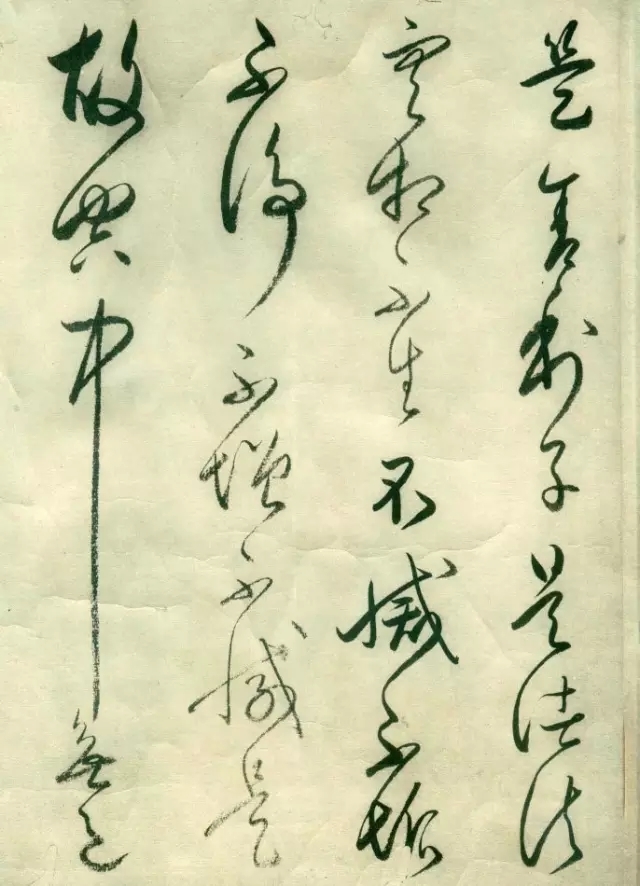 是舍利子是諸法
空相不生不滅不垢
不淨不增不減是
故空中無色